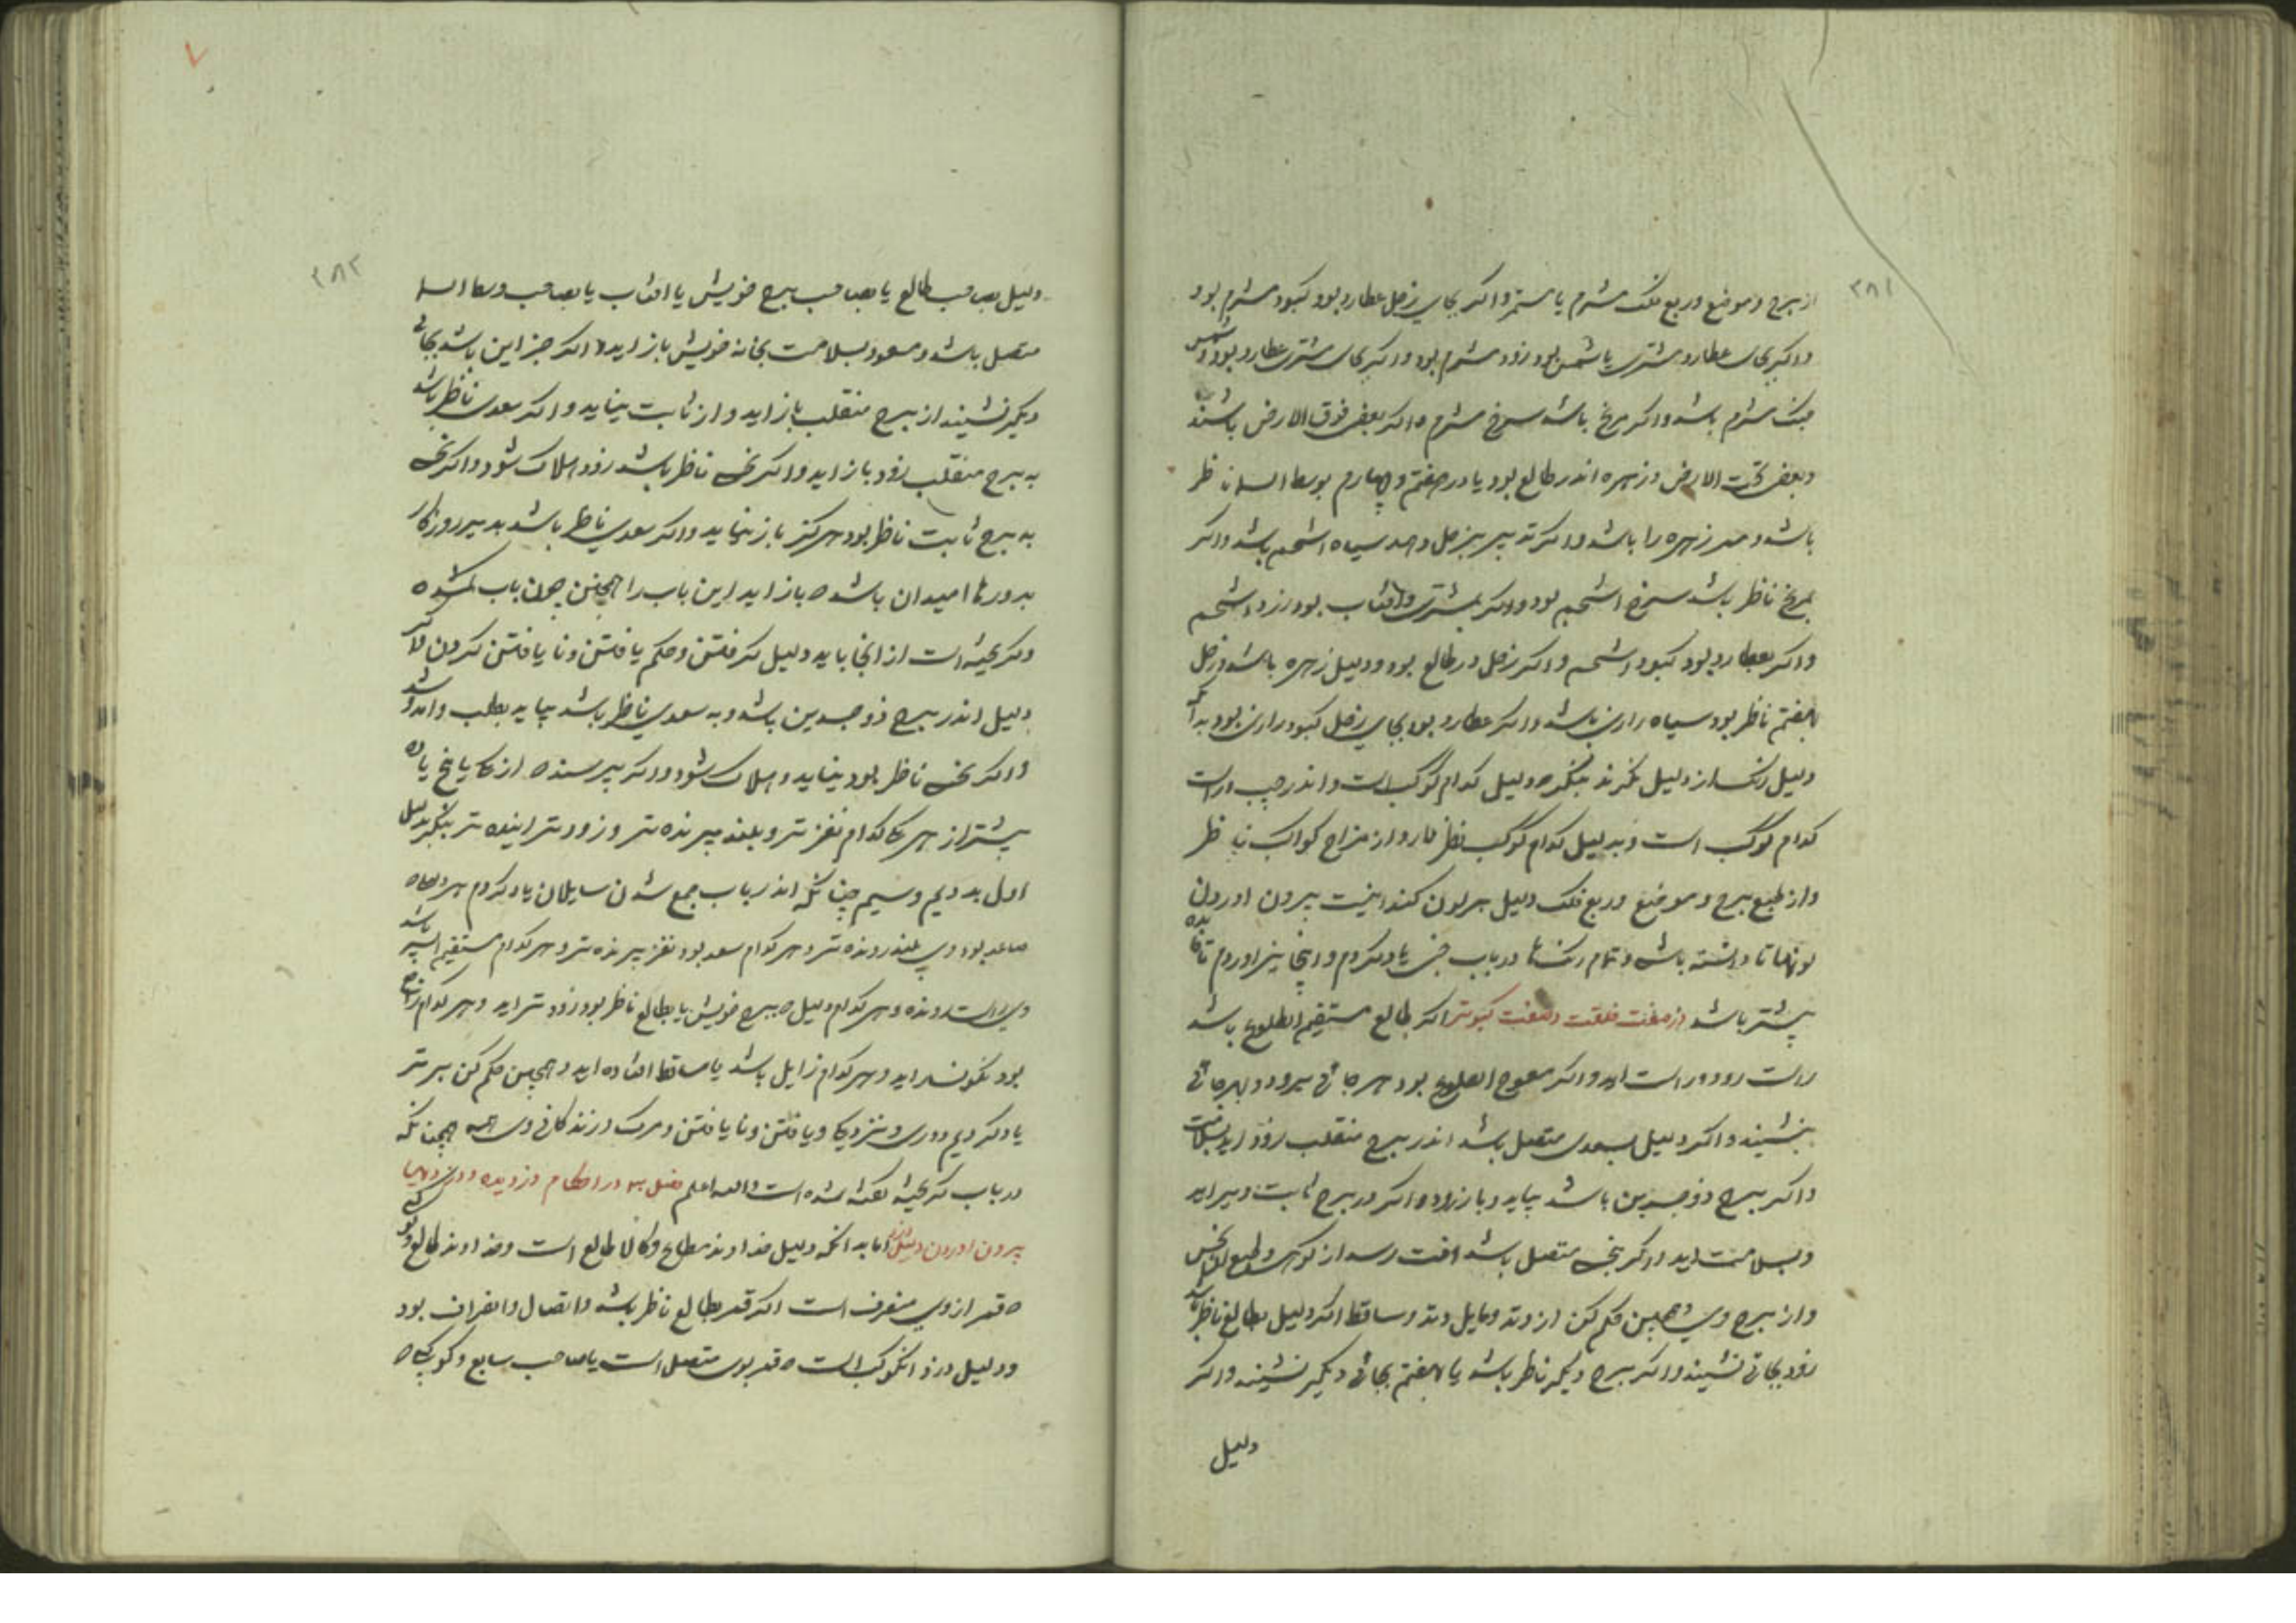 ۲۸۱
از برج و موضع و ربع فلک مشرم یا مستمر و اکر بجای زحل عطارد بود کبود مشرم بود
و اکر بجای عطارد مشتری یا شمس بود زود مشرم بود و اکر بجای مشتری عطارد بود و شمس
مشرم باشد و اکر مریخ باشد سرخ مشرم و اکر بعضی فوق الارض باشند
و بعضی تحت الارض و زهره اندر طالع بود یا در هفتم و چهارم بوسط السما ناظر
باشد و زهره را باشد و اکر بزحل دهد سیاه اشحم باشد و اکر
بمریخ ناظر باشد سرخ اشحم بود و اکر بمشتری و افتاب بود زرد اشحم
و اکر بعطارد بود کبود اشحم و اکر زحل در طالع بود و دلیل زهره باشد و زحل
بهفتم ناظر بود سیاه باشد و اکر عطارد بود بجای زحل کبود بود
دلیل رنک از دلیل بنکرد دلیل کدام کوکب است و اندر
کدام کوکب است و بدلیل کدام کوکب نظر دارد از مزاج کواکب ناظر
و از طبع برج و موضع و ربع فلک دلیل هر لون کند اینست بیرون اوردن
لونها تا دانسته باشد و تمام رنکها در باب یاد کردم و اینجا نیز اوردم تا فایده
بیشتر باشد از صفت خلقت و صفت کبوتر اکر طالع مستقیم الطلوع باشد
راست رود و راست اید و اکر معوج الطلوع بود هر جائی میرود و بهر جائی
بنشیند و اکر دلیل بسعدی متصل باشد اندر برج منقلب زود اید بسلامت
و اکر برج ذو جسدین باشد بیاید و باز رود و اکر در برج ثابت دیر اید
و بسلامت اید و اکر بنحس متصل باشد افت رسد از کوهر و طبع نحس
و از برج وی و همچنین حکم کن از وتد و مایل وتد و ساقط اکر دلیل بطالع ناظر باشد
زود بجائی نشیند و اکر ببرج دیکر ناظر باشد یا بهفتم بجائی دیکر نشیند و اکر
دلیل
۲۸۲
دلیل بصاحب طالع یا بصاحب برج خویش یا افتاب یا بصاحب وسط السما
متصل باشد و مسعود بسلامت بخانه خویش باز اید و اکر جز این باشد بجائی
دیکر نشیند از برج منقلب باز اید و از ثابت نیاید و اکر سعدی ناظر باشد
به برج منقلب زود باز اید و اکر نحس ناظر باشد زود هلاک شود و اکر نحس
به برج ثابت ناظر بود هرکز باز نیاید و اکر سعدی ناظر باشد بدیر روزکار
امیدان باشد باز اید این باب را همچنین چون باب کمشده
و کریخته است از انجا باید دلیل کرفتن و حکم یافتن و نا یافتن کردن و اکر
دلیل اندر برج ذو جسدین باشد و به سعدی ناظر باشد بیاید بطلب
و اکر نحس ناظر بود نیاید و هلاک شود و اکر پرسنده از یا پنج یا ده
بیشتر از هر کدام نغز تر و بلند پرنده تر و زود تر اینده تر بنکر بدلیل
اول بدویم و سیم چنانکه اندر باب جمع شدن سایلان یاد کردم هر
صاعد بود وی بلند رونده تر و هر کدام سعد بود نغز پرنده تر و هر کدام مستقیم السیر باشد
وی راست رونده و هر کدام دلیل ببرج خویش یا بطالع ناظر بود زود تر اید و هر کدام راجع
بود نکونسار اید و هر کدام زایل باشد یا ساقط افتاده اید و همچنین حکم کن
یاد کردیم دوری و نزدیکی و یافتن و نا یافتن و مرک و زندکانی وی همه همچنانکه
در باب کریخته کفته شده است والله اعلم فصل در احکام دزدیده
بیرون اوردن اما بدانکه دلیل خداوند و کالا طالع است و خداوند طالع
قمر از وی منصرف است اکر قمر بطالع ناظر باشد و اتصال و انصراف بود
و دلیل دزد انکوکب است قمر بوی متصل است یا صاحب سابع و کوکبی